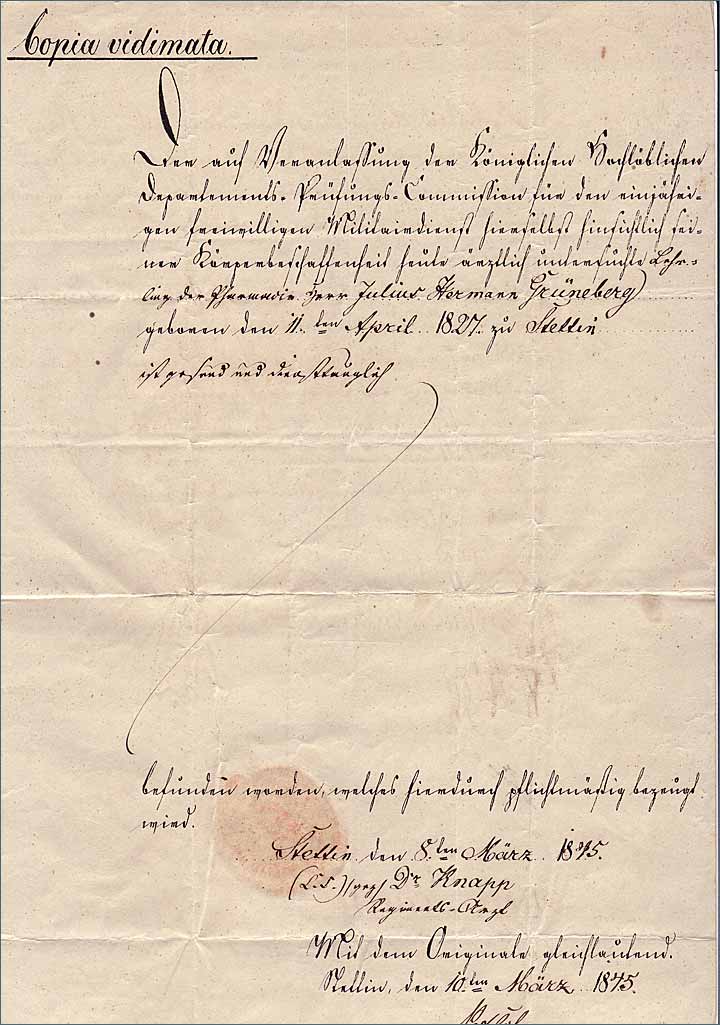 Copia vidimata.
Der auf Veranlassung der Königlichen Hochlöblichen
Departements-Prüfungs-Commission für den einjähri-
gen freiwilligen Militairdienst hierselbst hinsichtlich sei-
ner Körperbeschaffenheit heute ärztlich untersuchte Lehr-
ling der Pharmacie Herr Julius Hermann Grüneberg
geboren den 11.ten April 1827. zu Stettin
ist gesund und diensttauglich
befunden worden, welches hierdurch pflichtmäßig bezeugt
wird.
Stettin den 8.ten März 1845.
(L.S.) gez. Dr. Knapp
Regiments-Arzt
Mit dem Originale gleichlautend.
Stettin, den 10.ten März 1845.